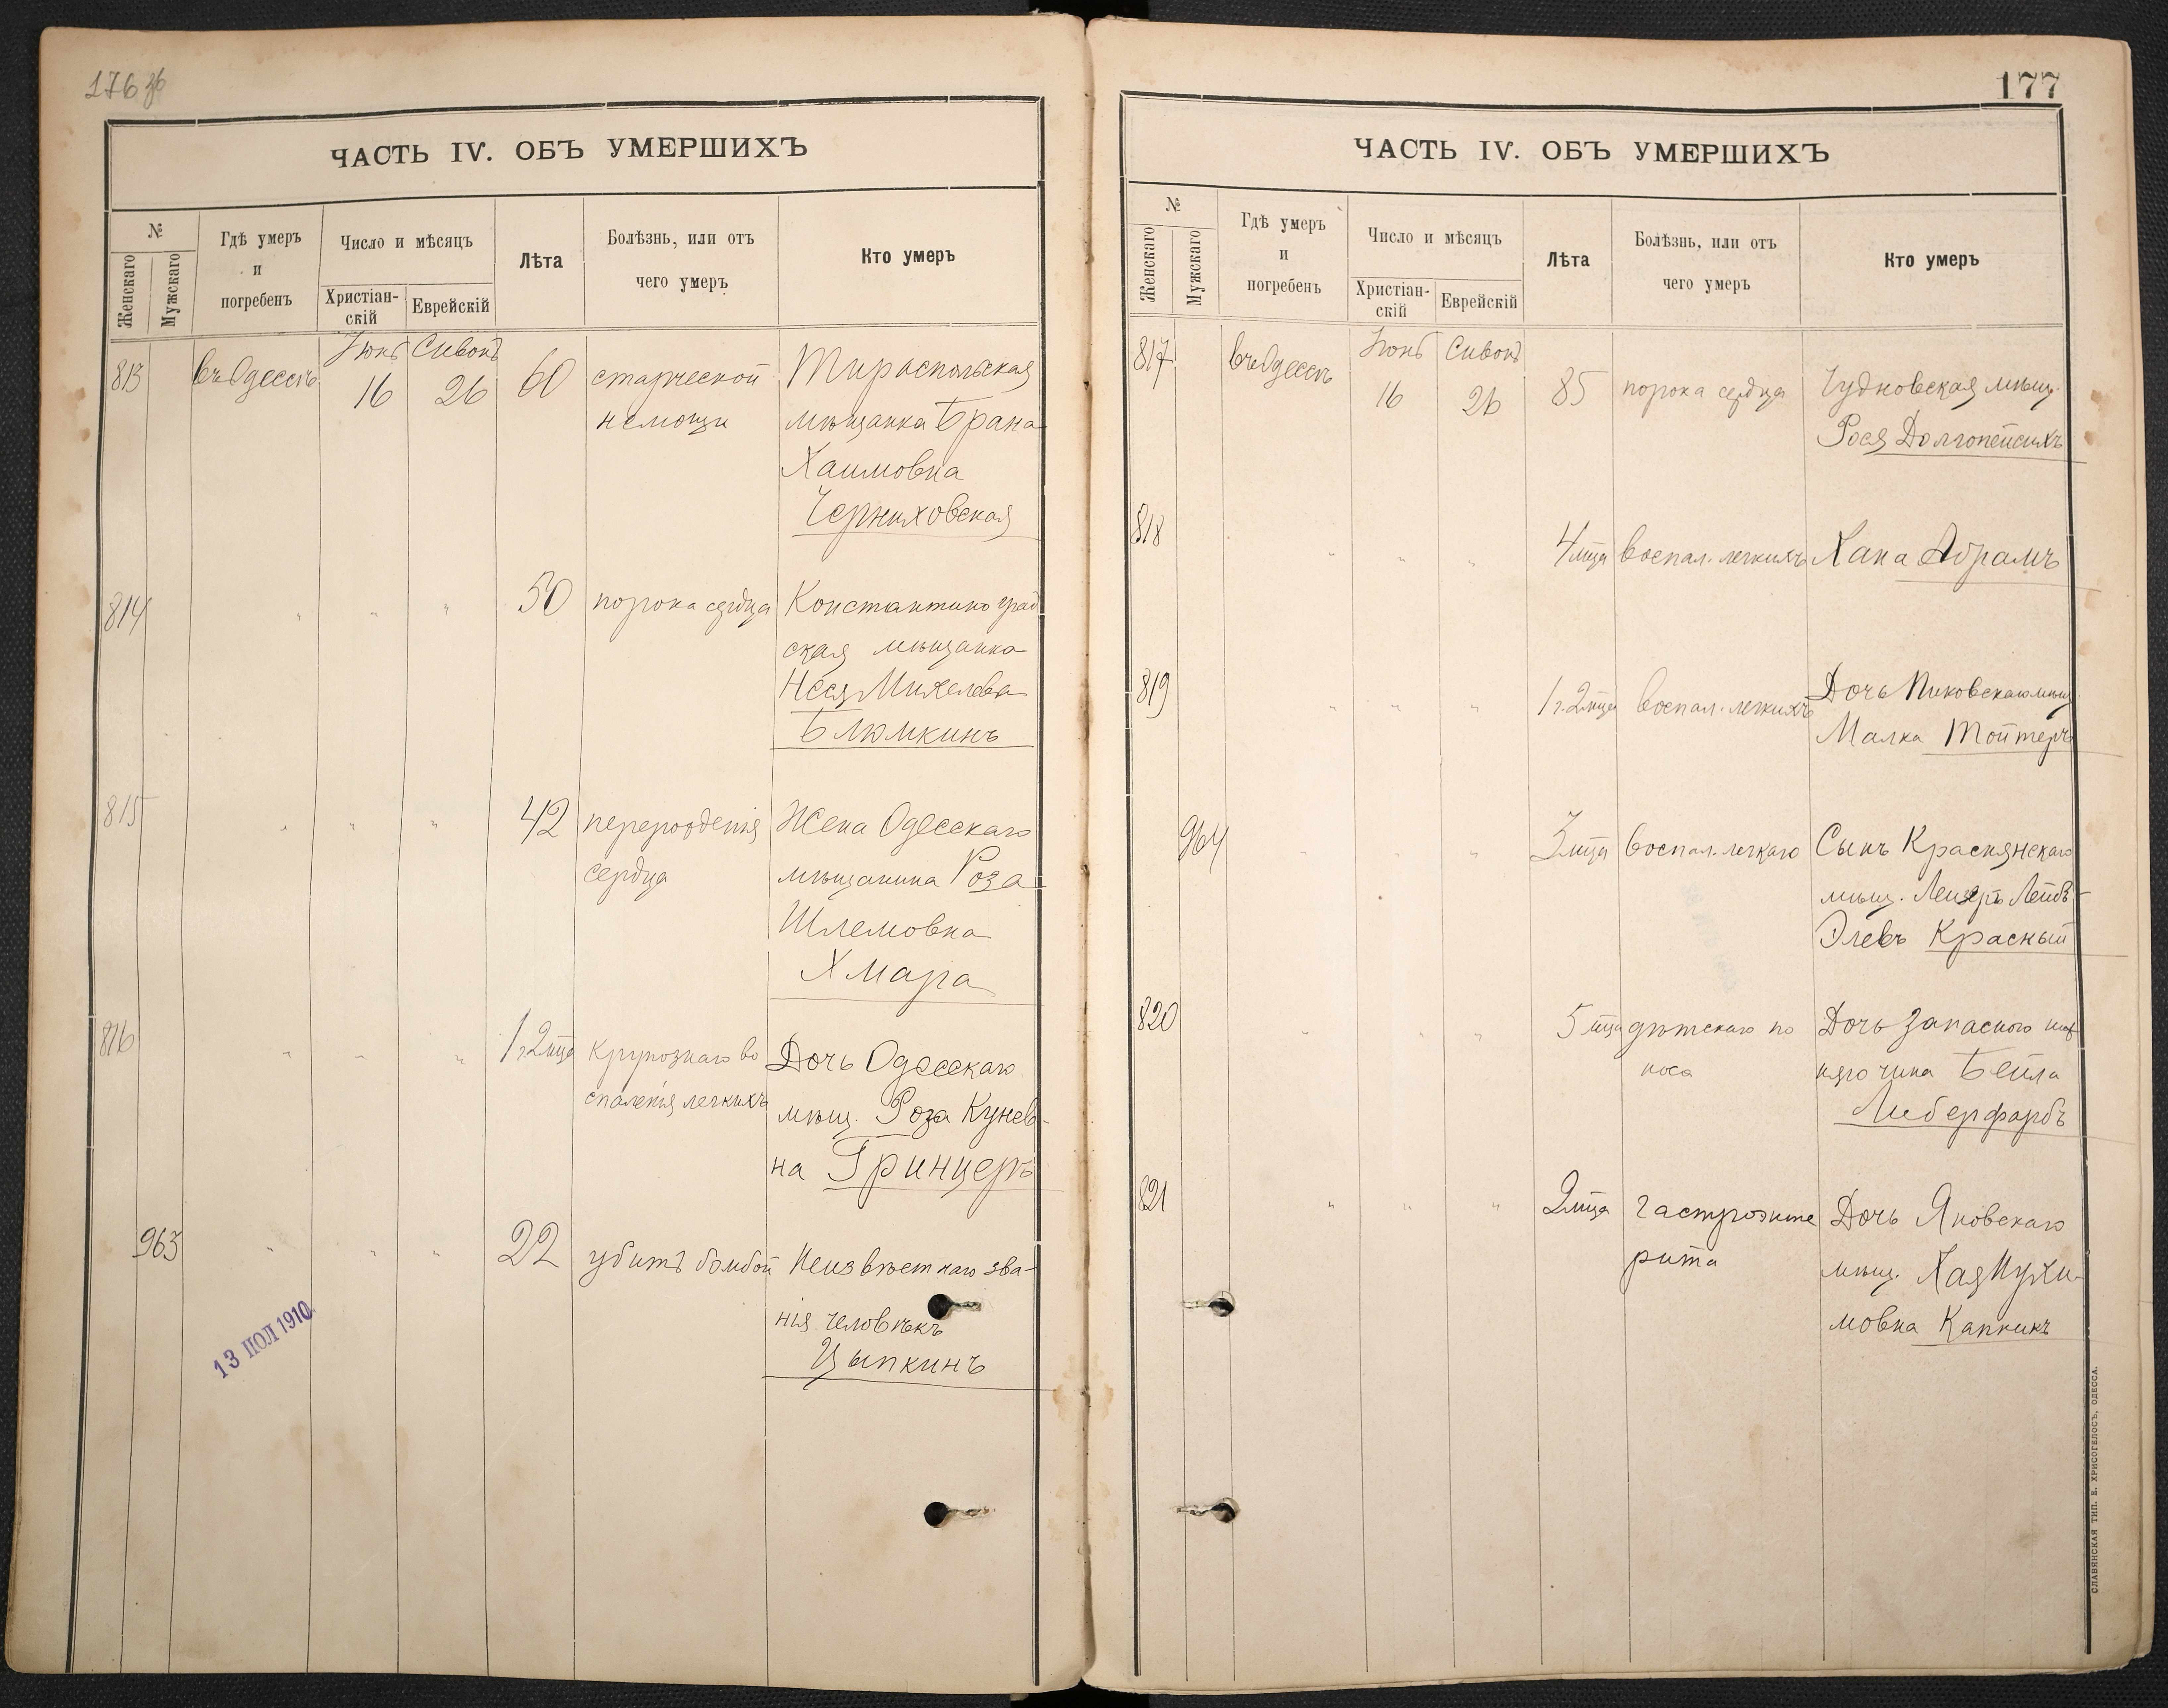 176 об
ЧАСТЬ IV. ОБЪ УМЕРШИХЪ
№
Женскаго
Мужскаго
Гдѣ умеръ
и
погребенъ
Число и мѣсяцъ
Христіан-
скій
Еврейскій
Лѣта
Болѣзнь, или отъ
чего умеръ
Кто умеръ
Іюнь Сивонъ
813 въ Одессѣ 16 26 60 старческой Тираспольская
немощи мѣщанка Брана
Хаимовна
Черняховская
814 " " " 50 порока сердца Константиноград
ская мѣщанка
Нися Михелева
Блюмкинъ
815 " " " 42 перерожденія Жена Одесскаго
сердца мѣщанина Роза
Шлемовна
Хмара
816 " " " 1 г. 2 мца крупознаго во Дочь Одесскаго
спаленія легкихъ мѣщ. Роза Кунев-
на Гринцеръ
963 " " " 22 убитъ бомбой Неизвѣстнаго зва-
нія человѣкъ
Цыпкинъ
13 ІЮЛ 1910
177
ЧАСТЬ IV. ОБЪ УМЕРШИХЪ
№
Женскаго
Мужскаго
Гдѣ умеръ
и
погребенъ
Число и мѣсяцъ
Христіан-
скій
Еврейскій
Лѣта
Болѣзнь, или отъ
чего умеръ
Кто умеръ
Іюнь Сивонъ
817 въ Одессѣ 16 26 85 порока сердца Чудновская мѣщ.
Рося Долгопейсихъ
818 " " " 4 мца воспал. легкихъ Хана Абрамъ
819 " " " 1 г. 2 мца воспал. легкихъ Дочь Пиковскаго мѣщ.
Малка Тойтеръ
964 " " " 3 мца воспал. легкаго Сынъ Краснянскаго
мѣщ. Лейзеръ Лейб-
Элевъ Красный
820 " " " 5 мца дѣтскаго по Дочь запаснаго ниж
носа няго чина Бейла
Либерфарбъ
821 " " " 2 мца гастроэнте Дочь Яновскаго
рита мѣщ. Хая Нухи-
мовна Капникъ
СЛАВЯНСКАЯ ТИП. Е. ХРИСОГЕЛОСЪ, ОДЕССА.